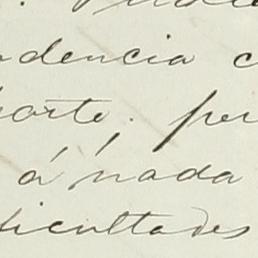 dencia c
parte. per
á nada
ficultades